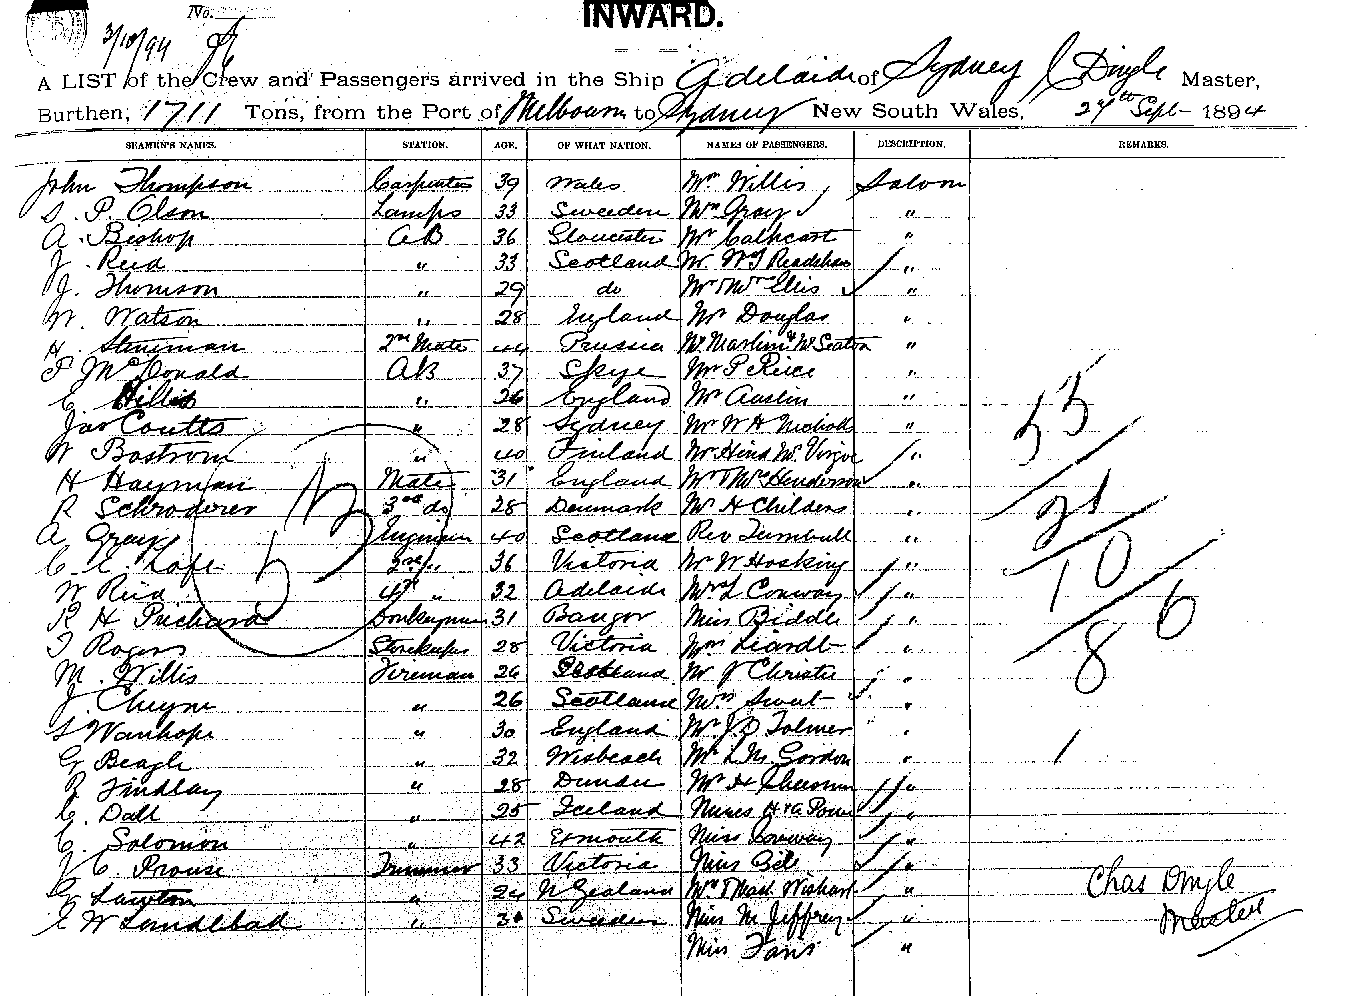 INWARD.
No.
3/10/94
A LIST of the Crew and Passengers arrived in the Ship Adelaide of Sydney C Dingle Master,
Burthen, 1711 Tons, from the Port of Melbourn to Sydney New South Wales, 27th Sept 1894
SEAMEN'S NAMES. STATION. AGE. OF WHAT NATION. NAMES OF PASSENGERS. DESCRIPTION. REMARKS.
John Thompson Carpenter 39 Wales Mrs Willis Saloon
S. P. Olson Lamps 33 Sweeden Mrs Gray "
A. Bishop AB 36 Gloucester Mr Cathcart "
J. Reid " 33 Scotland Mr. W J Readshaw "
J. Thomson " 29 do Mr & Mrs Ellis "
W. Watson " 28 England Mr Douglas "
H. 2nd Mate 44 Prussia Mr Martin & Mr Seaton "
P McDonald AB 37 Skye Mr P Reice "
C Hillis " 26 England Mr Austin "
Jas Coutts " 28 Sydney Mr W H Nicholls "
W Bostrom " 40 Finland Mr Hind Mr Virgoe "
H Hayman Mate 31 England Mr & Mrs Henderson "
R Schroderer 3rd do 28 Denmark Mr H Childers "
A Gray Engineer 40 Scotland Rev Turnbull "
C. 3rd " 36 Victoria Mr W Hosking "
W Reid 4th " 32 Adelaide Mrs L Conway "
R H Prichard Donkeyman 31 Bangor Miss Biddle "
T Rogers Storekeeper 28 Victoria Liardet "
M. Willis Fireman 26 Scotland Mr J Christie "
J. Cheyne " 26 Scotland Mrs "
Wanhope " 30 England Mr J. D Tolmer "
G Beagle " 32 Wisbeach Mr L M Gordon "
R Findlay " 28 Dundee Mr H "
C. Dall " 25 Iceland Misses H & A Power "
C. Solomon " 42 Exmouth Miss Conway "
J C. Prouse Trimmer 33 Victoria Miss Bell "
G Lawton " 24 N Zealand Mrs & Mast Wishart "
C W Lundblad " 30 Sweeden Miss M Jeffrey "
Miss Faris "
53
55
21
10
8
6
1
Chas Dingle
Master